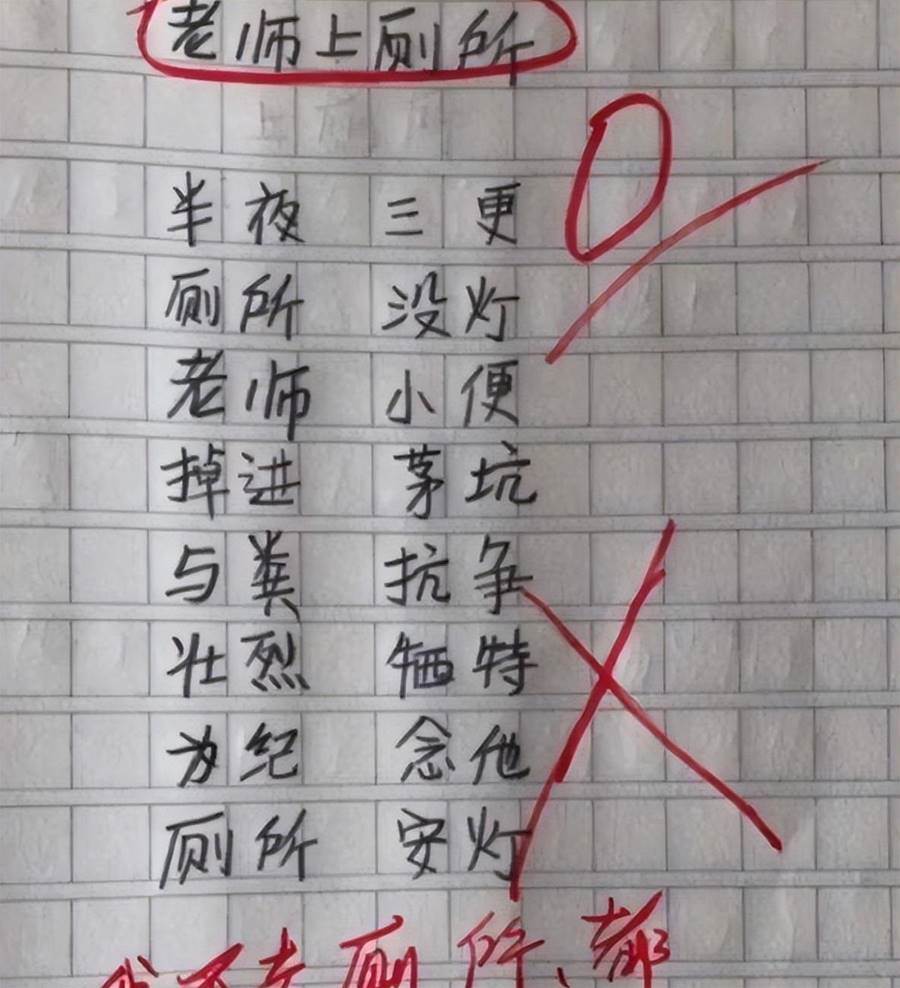 老师上厕所
0
半夜 三更
厕所 没灯
老师 小便
掉进 茅坑
与粪 抗争
壮烈 牺特
为纪 念他
厕所 安灯
厕所、都